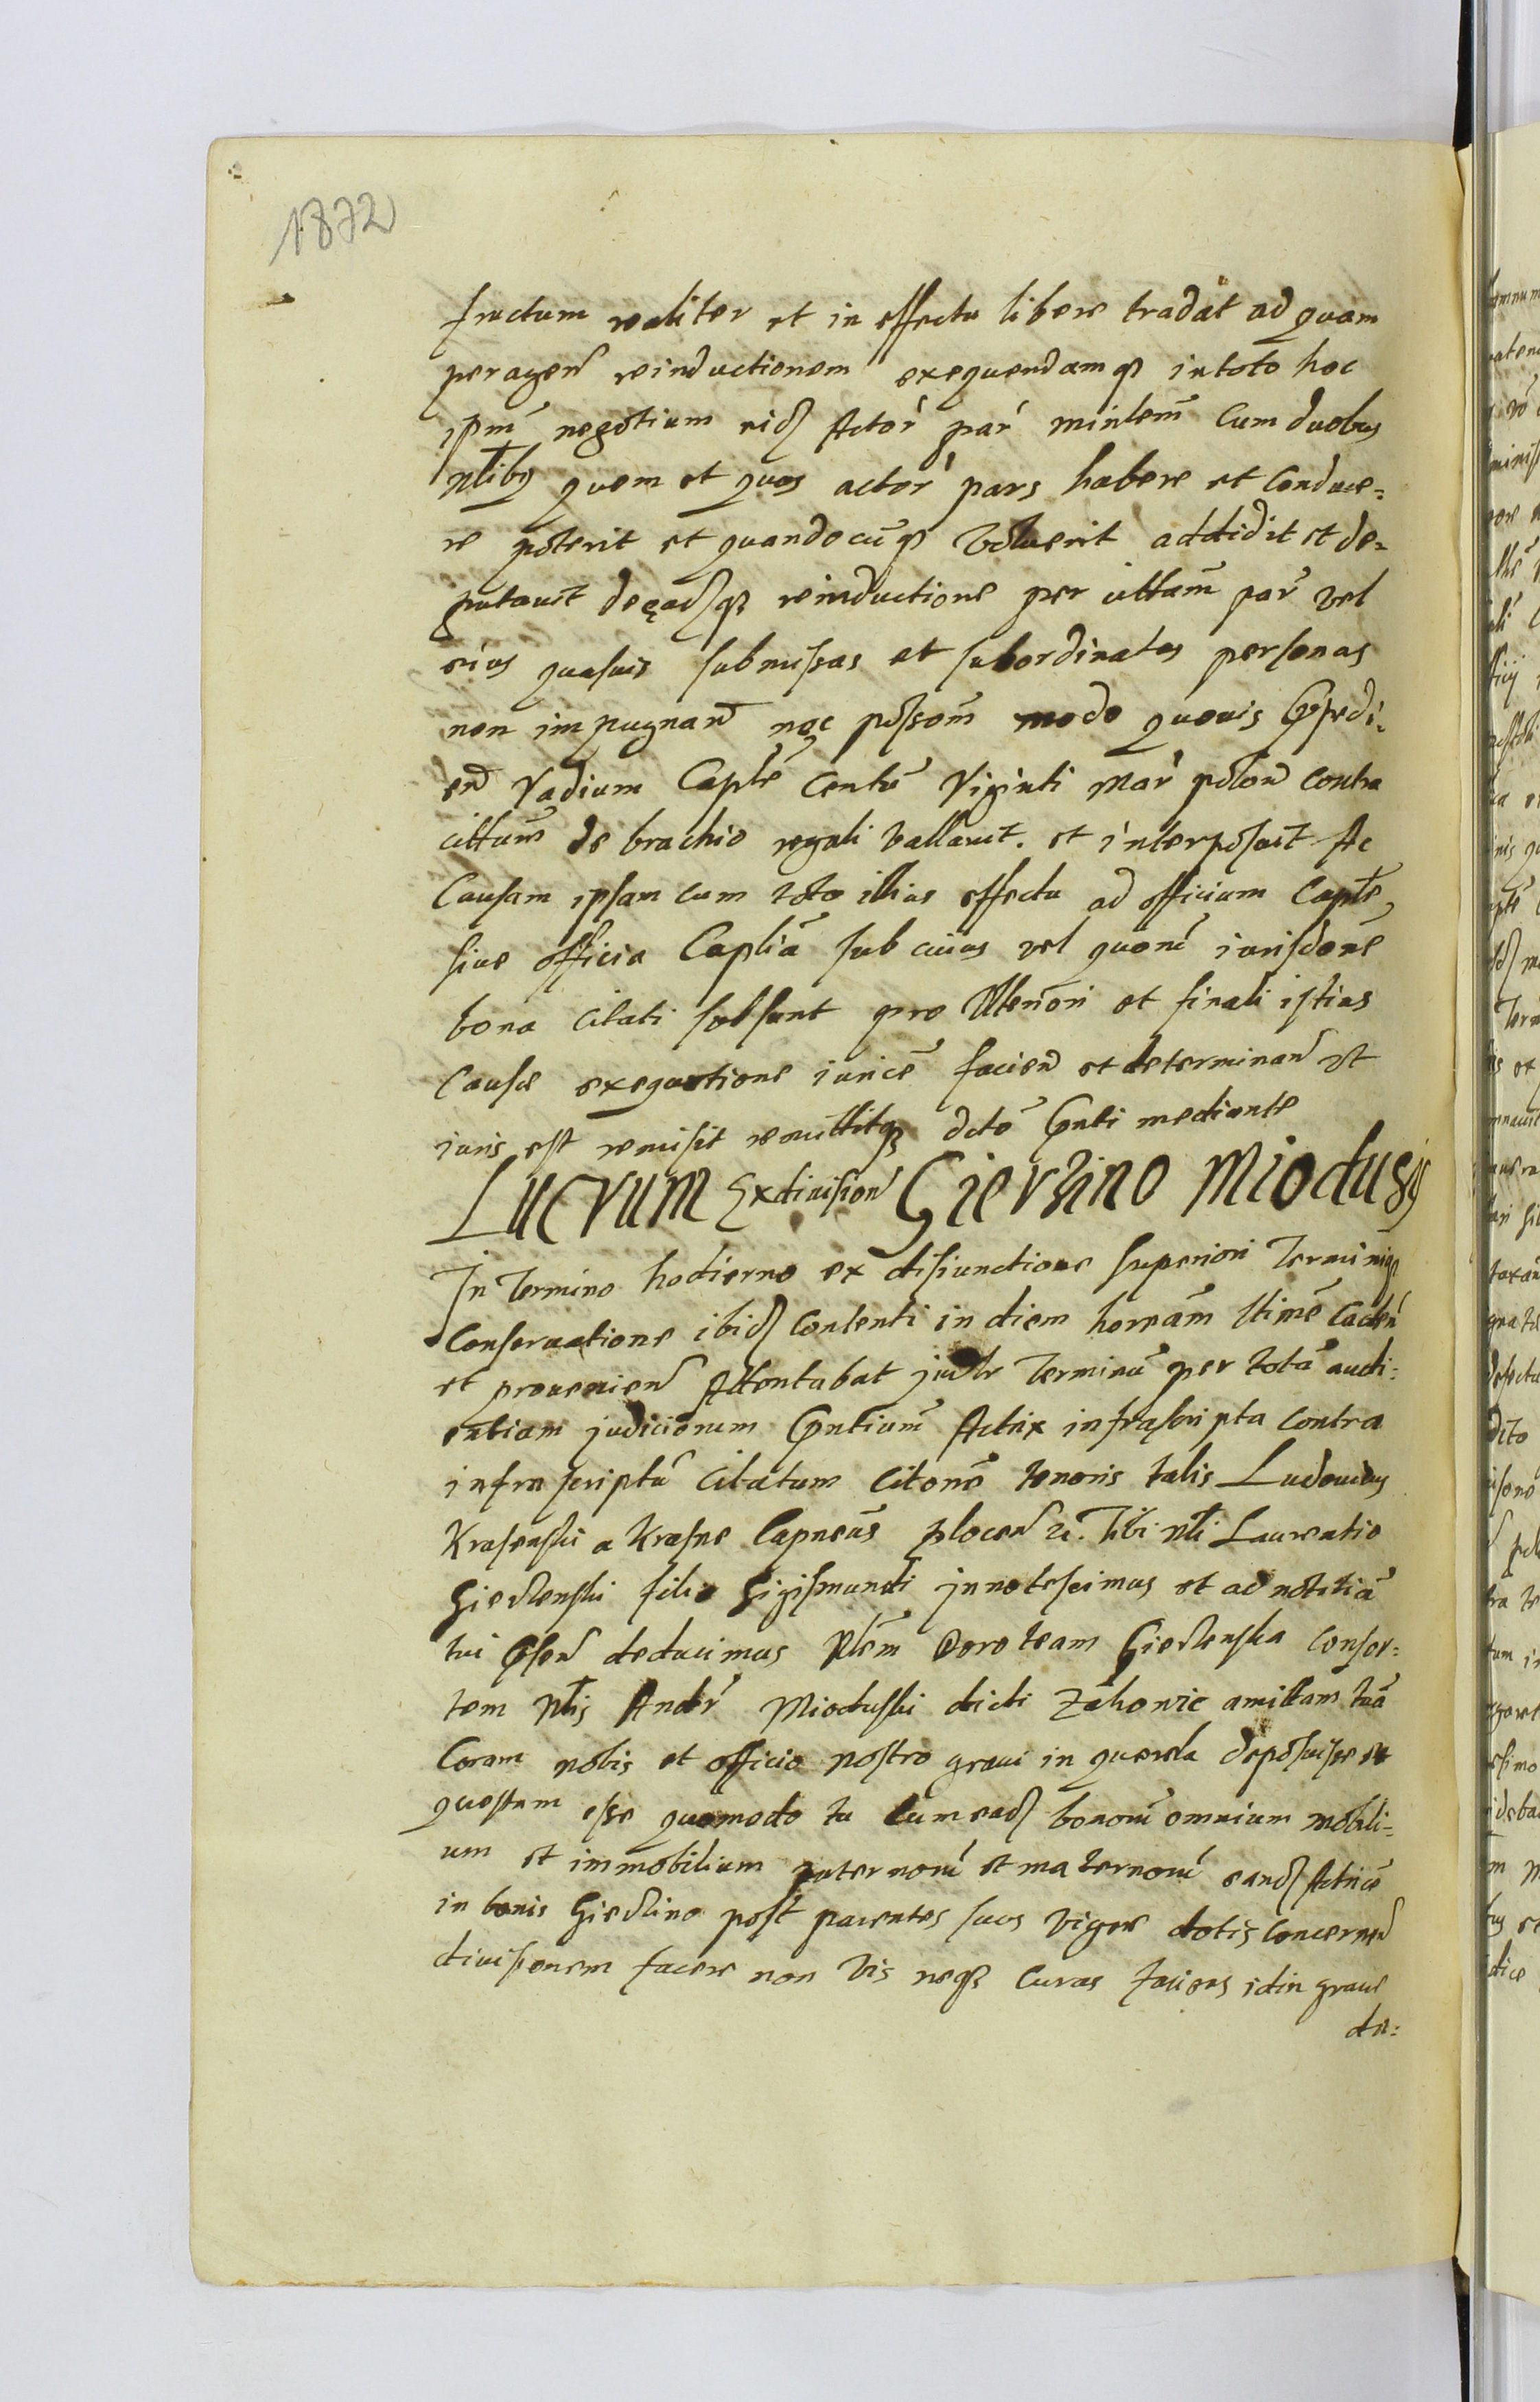 1872
fructum realiter et in effectu libere tradat ad quam
peragen reinductionem exequendamq in toto hoc
ipm negotium eid Actor par minlem Cum duobus
Nlibq quem et quos actor pars habere et Conduce=
re poterit et quandocuq Voluerit addidit et de=
putauit de eadq reinductione per cittam par vel
eius quasuis submissas et subordinatas personas
non impugnan nec possom modo quouis Expedi=
en Vadium Caple Centu Viginti Mar polon Contra
cittum de brachio regali vallauit. et interposuit Ac
Causam ipsam cum toto illius effectu ad officium Caple
siue officia Caplia sub cuius vel quoru iurisdone
bona citati subsunt pro Ulteriori et finali istius
Causæ exequutione iurice facien et determinan Vt
iuris est remisit remittitq dcto Gnti mediante
Lucrum Ex diuision Gierzino Miodusij
In Termino hodierno ex disiunctione superiori Terminiq
Conseruatione ibid contenti in diem hoream ltime Caden
et prouenien Attentabat judr Terminu per tota audi=
entiam judiciorum Gntium Actrix infrascripta Contra
infrascriptu Citatum Citone tenoris talis Ludouicus
Krasenski a Krasne Capneus plocen ec. Tibi Nli Laurentio
Gierzenski filio Sigismundi jnnotescimus et ad notitia
tui Gsen deducimus Nlem Doroteam Gierzenska Consor=
tem Nlis Andr Mioduski dicti Zahowic amittam tua
Coram nobis et officio nostro graui in querela deposuisse et
questum esse quomodo tu Cum ead bonoru omnium mobili=
um et immobilium paternoru et maternoru eand Actrice
in bonis Gierzino post parentes suos vigore dotis Concernen
diuisionem facere non Vis neq Curas facies id in graue
da=